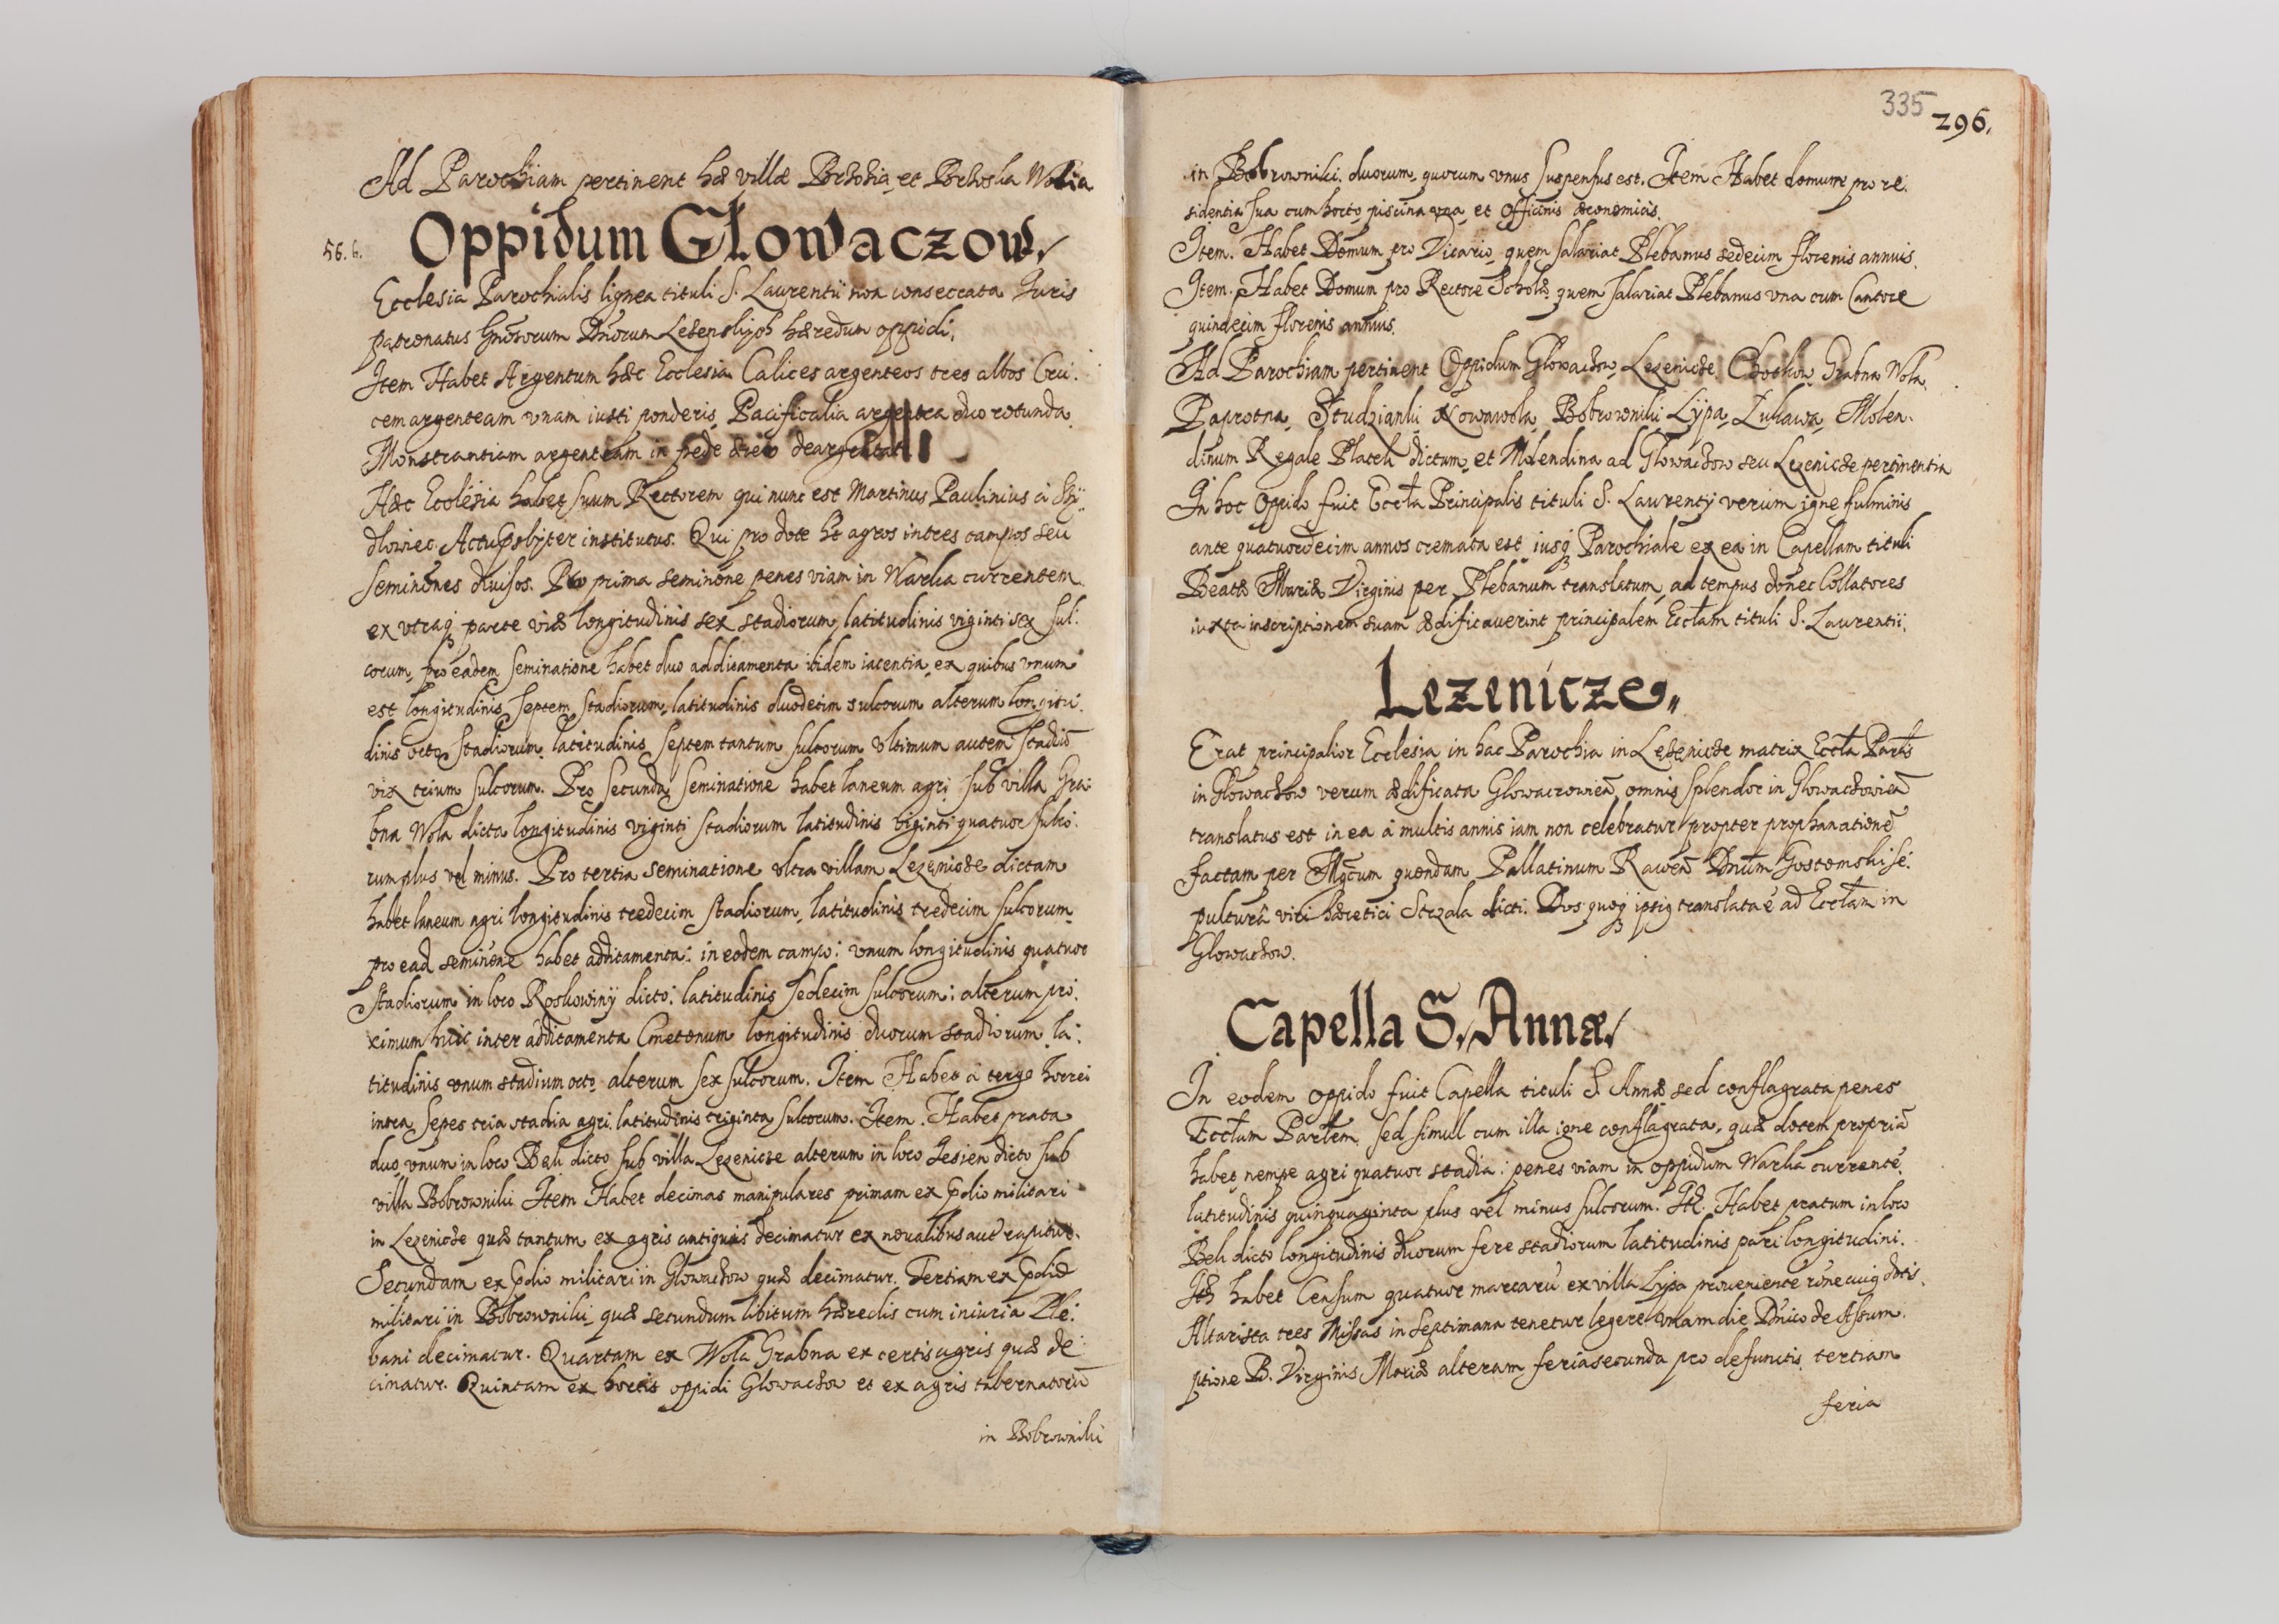 Ad Parochiam pertinent hæ villæ et Wolia
56. 6.
Oppidum Głowaczow
Ecclesia Parochialis lignea tituli S. Laurentii non consecrata Iuris
patronatus Gnōsorum Dnōrum hæredum oppidi.
Item Habet Argentum hæc Ecclesia Calices argenteos tres albos Cru:
cem argenteam vnam iusti ponderis, Pacificalia argentea duo rotunda.
Monstrantiam argenteam in pede æreo deargentat
Hæc Ecclesia habet suum Rectorem qui nunc est Martinus Paulinius à Shÿ:
dlowiec Actupsbÿter institutus. Qui pro dote ht agros in tres campos seu
seminōnes diuisos. Pro prima seminōne penes viam in Warka currentem
ex vtraq parte viæ longitudinis sex stadiorum, latitudinis viginti sex sul:
corum, pro eadem seminatione habet duo additamenta ibidem iacentia, ex quibus vnum
est longitudinis septem stadiorum, latitudinis duodecim sulcorum alterum longitu:
dinis octo stadiorum, latitudinis septem tantum sulcorum vltimum autem stadiū
vix trium sulcorum. Pro secunda seminatione habet laneum agri sub villa Gra:
bna Wola dicta longitudinis viginti stadiorum latitudinis viginti quatuor sulco:
rum plus vel minus. Pro tertia seminatione vltra villam Lezenicze dictam
habet laneum agri longitudinis tredecim stadiorum, latitudinis tredecim sulcorum.
pro ead seminōne habet additamenta: in eodem campo: vnum longitudinis quatuor
stadiorum in loco Roskowinÿ dicto: latitudinis sedecim sulcorum: alterum pro:
ximum huic inter additamenta Cmetonum longitudinis duorum stadiorum la:
titudinis vnum stadium octo alterum sex sulcorum. Item Habet à tergo horrei
intra sepes tria stadia agri latitudinis triginta sulcorum. Item. Habet prata
duo, vnum in loco Beli dicto sub villa Lezenicze alterum in loco Jesien dicto sub
villa Bobrowniki Item Habet decimas manipulares primam ex pdio militari
in Lezenicze quæ tantum ex agris antiquis decimatur ex noualibus aut rapitur.
Secundam ex pdio militari in Glowachow quæ decimatur. Tertiam ex pdio
militari in Bobrowniki quæ secundum libitum hæredis cum iniuria Ple:
bani decimatur. Quartam ex Wola Grabna ex certis agris quæ de:
cimatur. Quintam ex hortis oppidi Glowachow et ex agris tabernatorū
in Bobrowniki
335
296.
in Bobrowniki. duorum, quorum vnus suspensus est. Item Habet domum pro re:
sidentia sua cum horto, piscina vna, et Officinis œconomicis.
Item. Habet Domum pro Vicario, quem salariat Plebanus sedecim florenis annuis.
Item. Habet Domum pro Rectore Scholæ quem salariat Plebanus vna cum Cantore
quindecim florenis annuis.
Ad Parochiam pertinent Oppidum Glowachow, Lezenicze, Chodkow, Grabna Wola,
Paprotna, Studzianki, Nowawola, Bobrowniki, Lÿpa, Zukawa, Molen:
dinum Regale Plateli dictum, et Molendina ad Glowachow seu Lezenicze pertinentia
In hoc Oppido fuit Eccta Principalis tituli S. Laurentÿ verum igne fulminis
ante quatuordecim annos cremata est iusq Parochiale ex ea in Capellam tituli
Beatæ Mariæ Virginis per Plebanum translatum, ad tempus donec Collatores
iuxta inscriptionem suam ædificauerint principalem Ecctam tituli S. Laurentii.
Lezenicze
Erat principalior Ecclesia in hac Parochia in Lezenicze matrix Eccta
in Glowachow verum ædificata omnis splendor in
translatus est in ea à multis annis iam non celebratur propter prophanationē
factam per Mgcum quondam Pallatinum Rawēn Dnūm Gostomski se:
pulturā viri hæretici Strzala dicti. Dos quoq ipsiq translata ē ad Ecctam in
Glowachow.
Capella S. Annæ
In eodem oppido fuit Capella tituli S. Annæ sed conflagrata penes
Ecctum sed simul cum illa igne conflagrata, quæ dotem propriā
habet nempe agri quatuor stadia: penes viam in oppidum Warka currentē,
latitudinis quinquaginta plus vel minus sulcorum. Itē. Habet pratum in loco
Beli dicto longitudinis duorum fere stadiorum latitudinis pari longitudini.
Itē habet Censum quatuor marcarū ex villa Lÿpa prouenientē rōne cuiq dotis.
Altarista tres Missas in septimana tenetur legere vnam die Dnico de Assum:
ptione B. Virginis Mariæ alteram feria secunda pro defunctis tertiam
feria